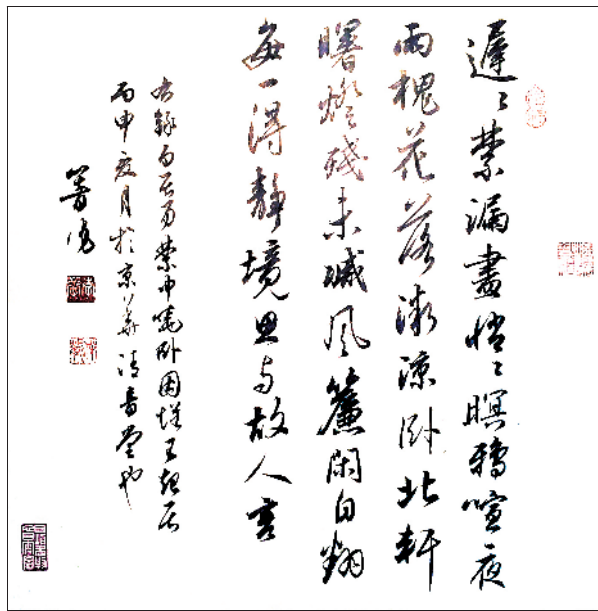 遲〻禁漏盡悄〻暝鴉喧夜
雨槐花落微涼卧北軒
曙燈殘未滅風簾閑自翻
每一得靜境思与故人言
右録白居易禁中曉卧因懷王起居
丙申夏月於京華清音堂也